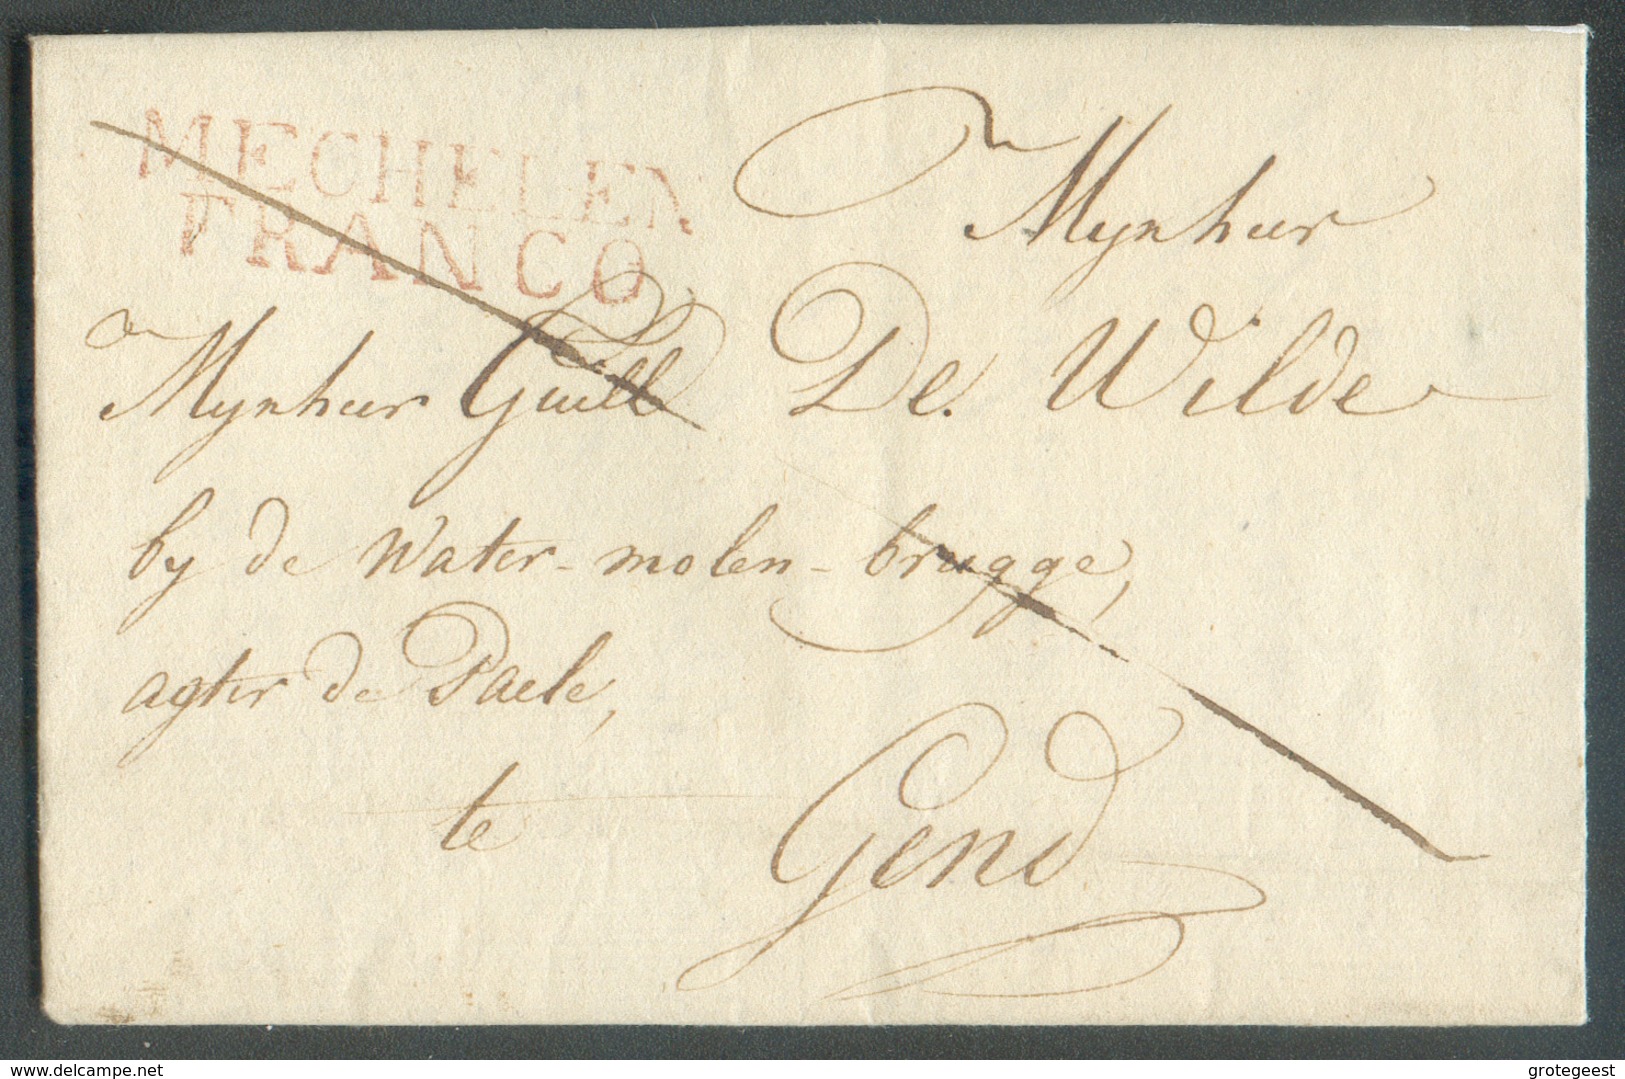 MECHELEN
FRANCO
Mynheer
Mynheer Guill De. Wilde
by de Water-molen-brugge,
agter de Paele,
te Gend
www.delcampe.net
grotegeest